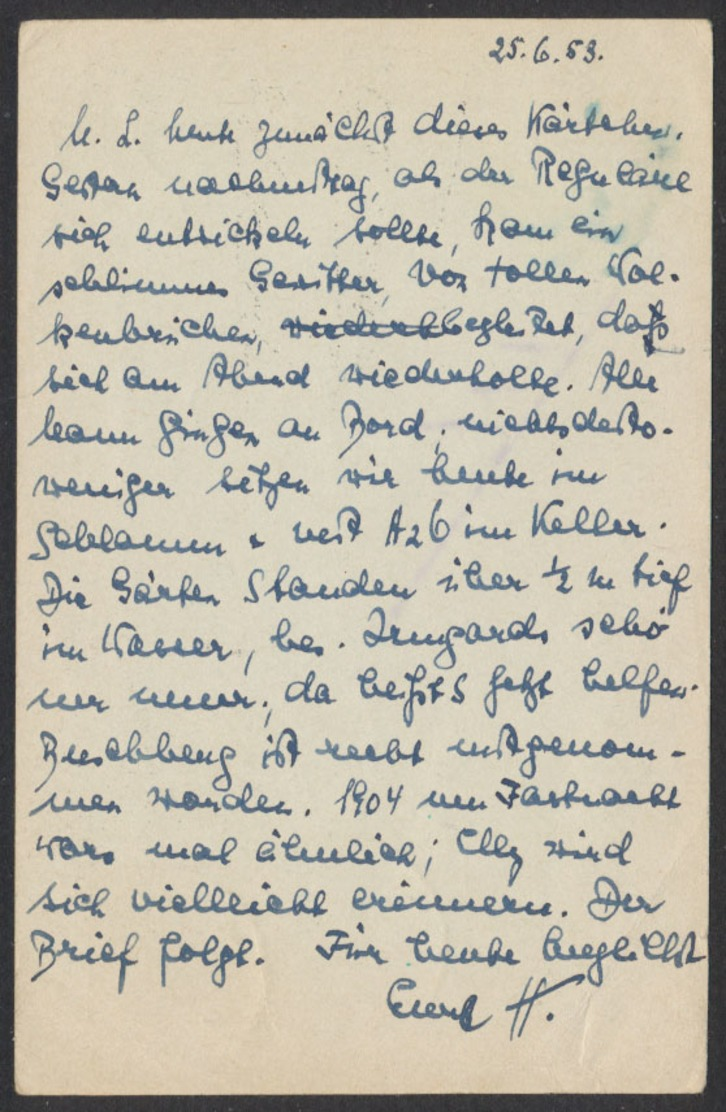 25.6.53.
M. L. heute zunächst dieses Kärtchen.
Gestern nachmittag, als der
sich entwickeln sollte, kam ein
schlimmes Gewitter, von tollen Wol-
kenbrüchen, begleitet, daß
sich am Abend wiederholte. Alle
Mann gingen an Bord; nichtsdesto-
weniger sitzen wir heute im
Schlamm & im Keller.
Die Gärten standen über ½ m tief
im Wasser, bes. Irmgards schö
ner neuer; da heißts jetzt helfen.
Buschberg ist recht mitgenom-
men worden. 1904 um Fastnacht
wars mal ähnlich; Elly wird
sich vielleicht erinnern. Der
Brief folgt. Für heute herzlichst
H.